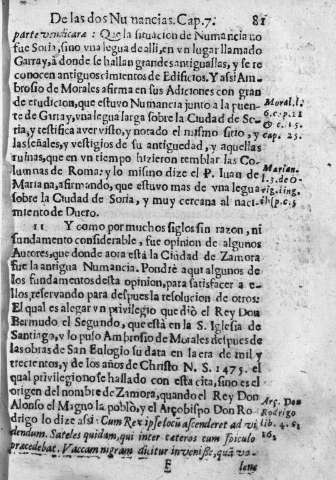 De las dos Numancias. Cap. 7. 81
parte vendicara: Que la situacion de Numancia no
fue Soria, sino vna legua de alli, en vn lugar llamado
Garray, à donde se hallan grandes antiguallas, y se re
conocen antiguos cimientos de Edificios. Y assi Am-
brosio de Morales afirma en sus Adiciones con gran
de erudicion, que estuvo Numancia junto a la puen-
te de Garray, vna legua larga sobre la Ciudad de So-
ria, y testifica aver visto, y notado el mismo sitio, y
las señales, y vestigios de su antiguedad, y aquellas
ruinas, que en vn tiempo hizieron temblar las Co-
lumnas de Roma: y lo mismo dize el P. Iuan de
Mariana, afirmando, que estuvo mas de vna legua
sobre la Ciudad de Soria, y muy cercana al naci-
miento de Duero.
Moral. l.
6. c. p. 11
& c. 15.
cap. 25.
Marian.
l. 3. de O
rig. ling.
11 Y como por muchos siglos sin razon, ni
fundamento considerable, fue opinion de algunos
Autores, que donde aora està la Ciudad de Zamora
fue la antigua Numancia. Pondrè aqui algunos de
los fundamentos desta opinion, para satisfacer a e-
llos reservando para despues la resolucion de otros:
El qual es alegar vn privilegio que diò el Rey Don
Bermudo el Segundo, que està en la S. Iglesia de
Santiago, y lo puso Ambrosio de Morales despues de
las obras de San Eulogio su data en la era de mil y
trecientos, y de los años de Christo N. S. 1475. el
qual privilegio no se ha llado con esta cita, sino es el
origen del nombre de Zamora, quando el Rey Don
Alonso el Magno la poblò, y el Arçobispo Don Ro-
drigo lo dize assi: Cum Rex ipse locũ ascenderet ad vi
dendum. Sateles quidam, qui inter cæteros cum spiculo
præcedebat. Vaccam nigram dicitur invenisse, quã vo-
Arç. Don
Rodrigo
lib. 4. c.
F lens